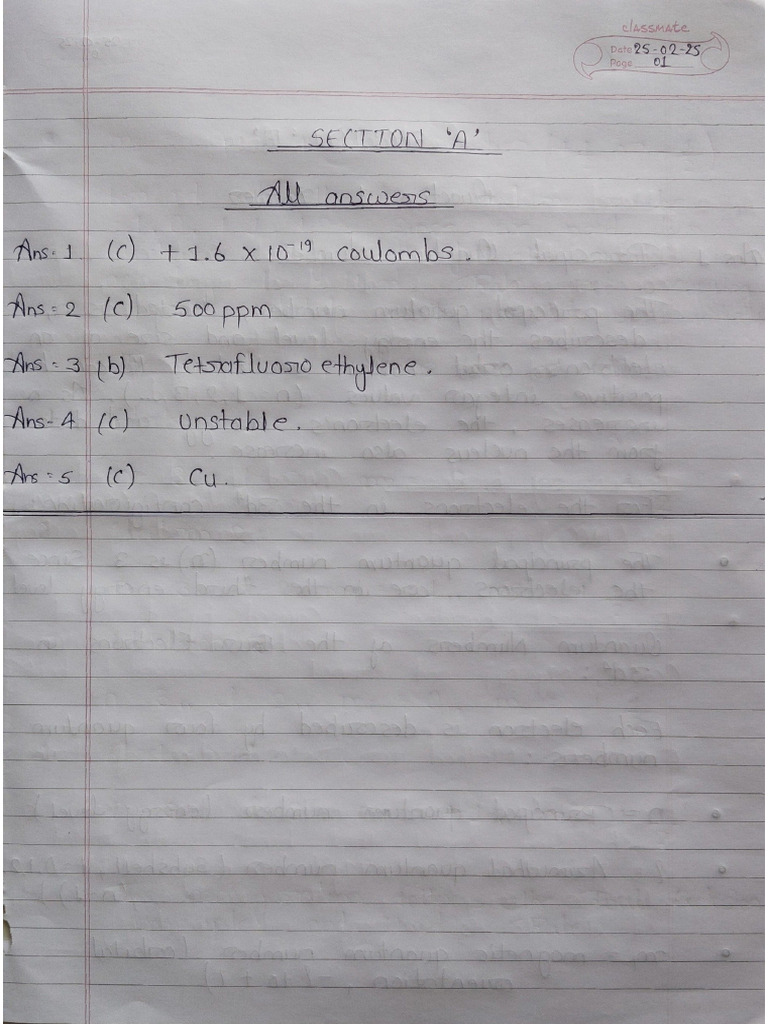 classmate
Date 25-02-25
Page 01
SECTION 'A'
All answers
Ans=1 (c) +1.6 × 10⁻¹⁹ coulombs.
Ans=2 (c) 500 ppm
Ans=3 (b) Tetrafluoro ethylene.
Ans-4 (c) unstable.
Ans=5 (c) Cu.